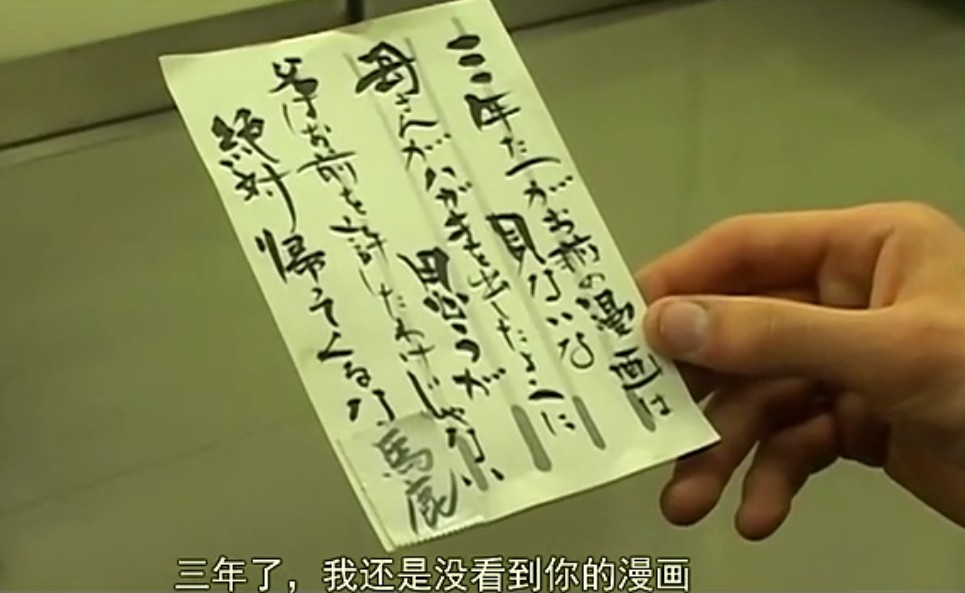 三年たつがお前の漫画は
見ないな
母さんがハガキを出したように
思うが
父はお前を許したわけじゃない
絶対帰ってくるな
馬鹿
三年了，我还是没看到你的漫画